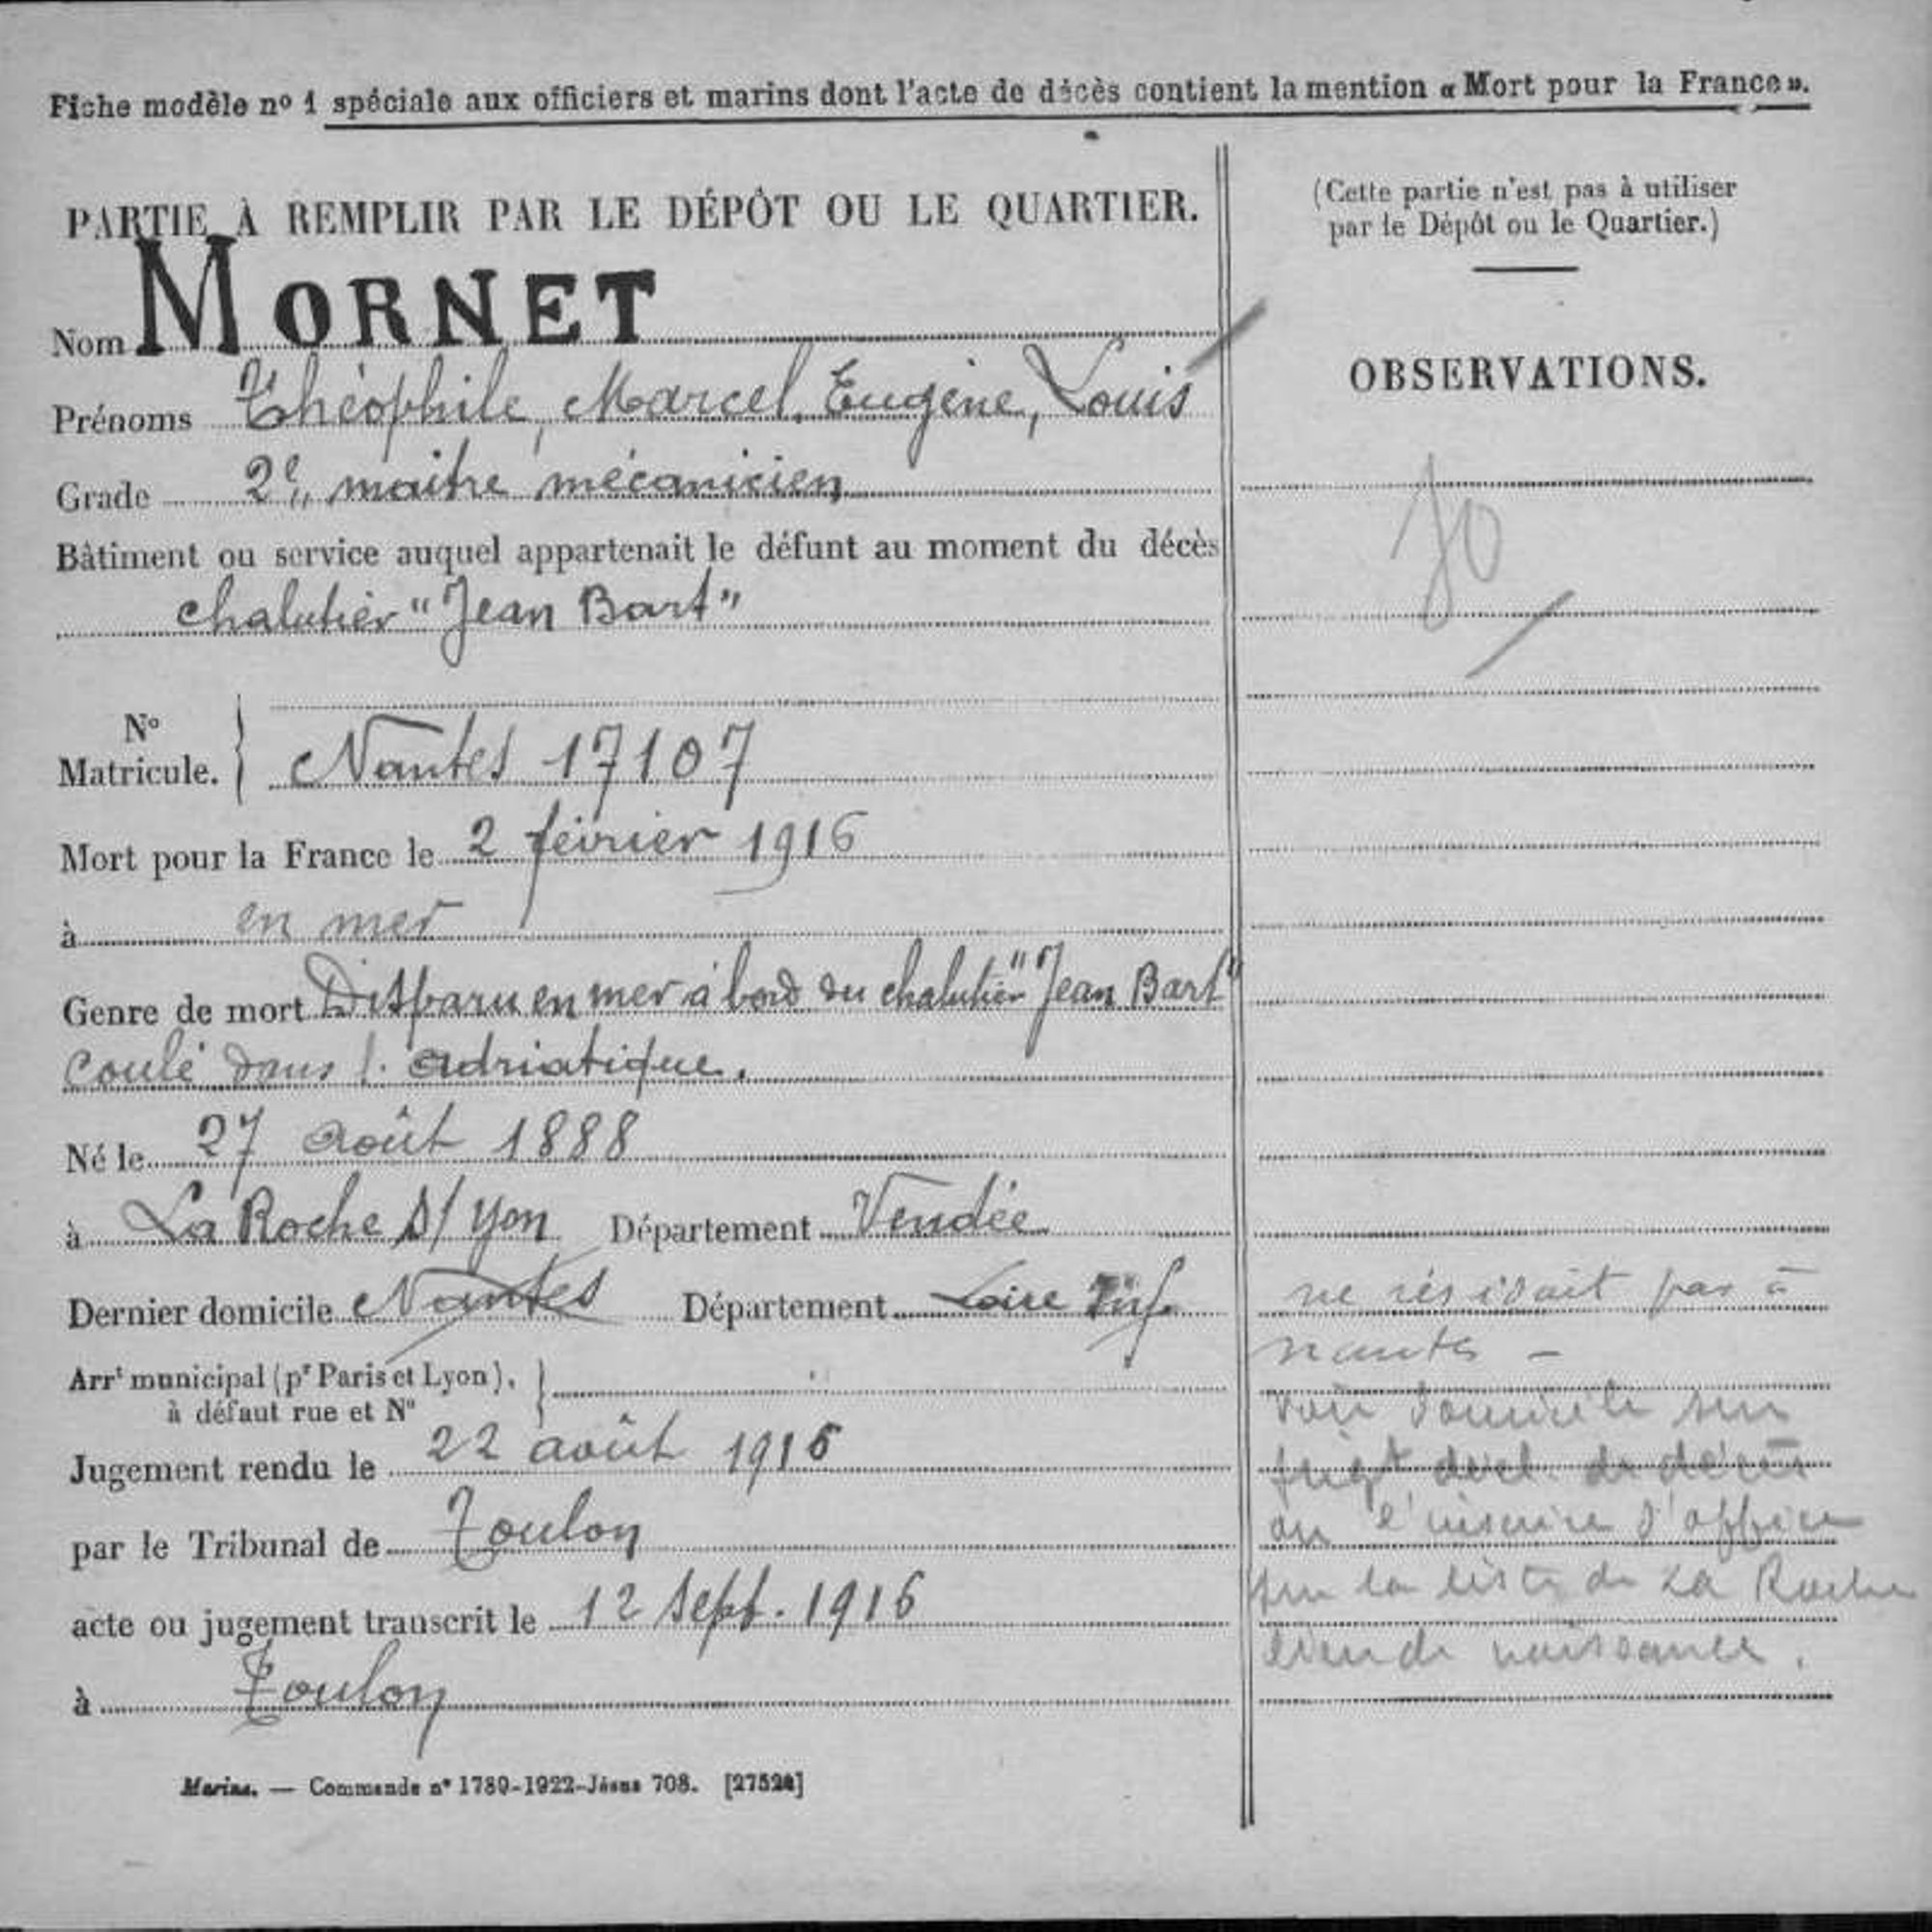 Fiche modèle nº 1 spéciale aux officiers et marins dont l'acte de décès contient la mention « Mort pour la France ».
PARTIE À REMPLIR PAR LE DÉPÔT OU LE QUARTIER.
Nom MORNET
Prénoms Théophile, Marcel, Eugène, Louis
Grade 2e maitre mécanicien
Bâtiment ou service auquel appartenait le défunt au moment du décès
chalutier "Jean Bart"
Nº Matricule. } Nantes 17107
Mort pour la France le 2 février 1916
à en mer
Genre de mort Disparu en mer à bord du chalutier "Jean Bart"
coulé dans l'adriatique.
Né le 27 août 1888
à La Roche s/ Yon Département Vendée
Dernier domicile Nantes Département Loire Inf.
Arrt municipal (pr Paris et Lyon), }
à défaut rue et Nº
Jugement rendu le 22 août 1916
par le Tribunal de Toulon
acte ou jugement transcrit le 12 sept. 1916
à Toulon
Marine. — Commande nº 1789-1922-Jésus 708. [27524]
(Cette partie n'est pas à utiliser
par le Dépôt ou le Quartier.)
OBSERVATIONS.
ne résidait pas à
nantes –
voir domicile sur
decl. de décès
ou l'inscrire d'office
sur la liste de La Roche
lieu de naissance.